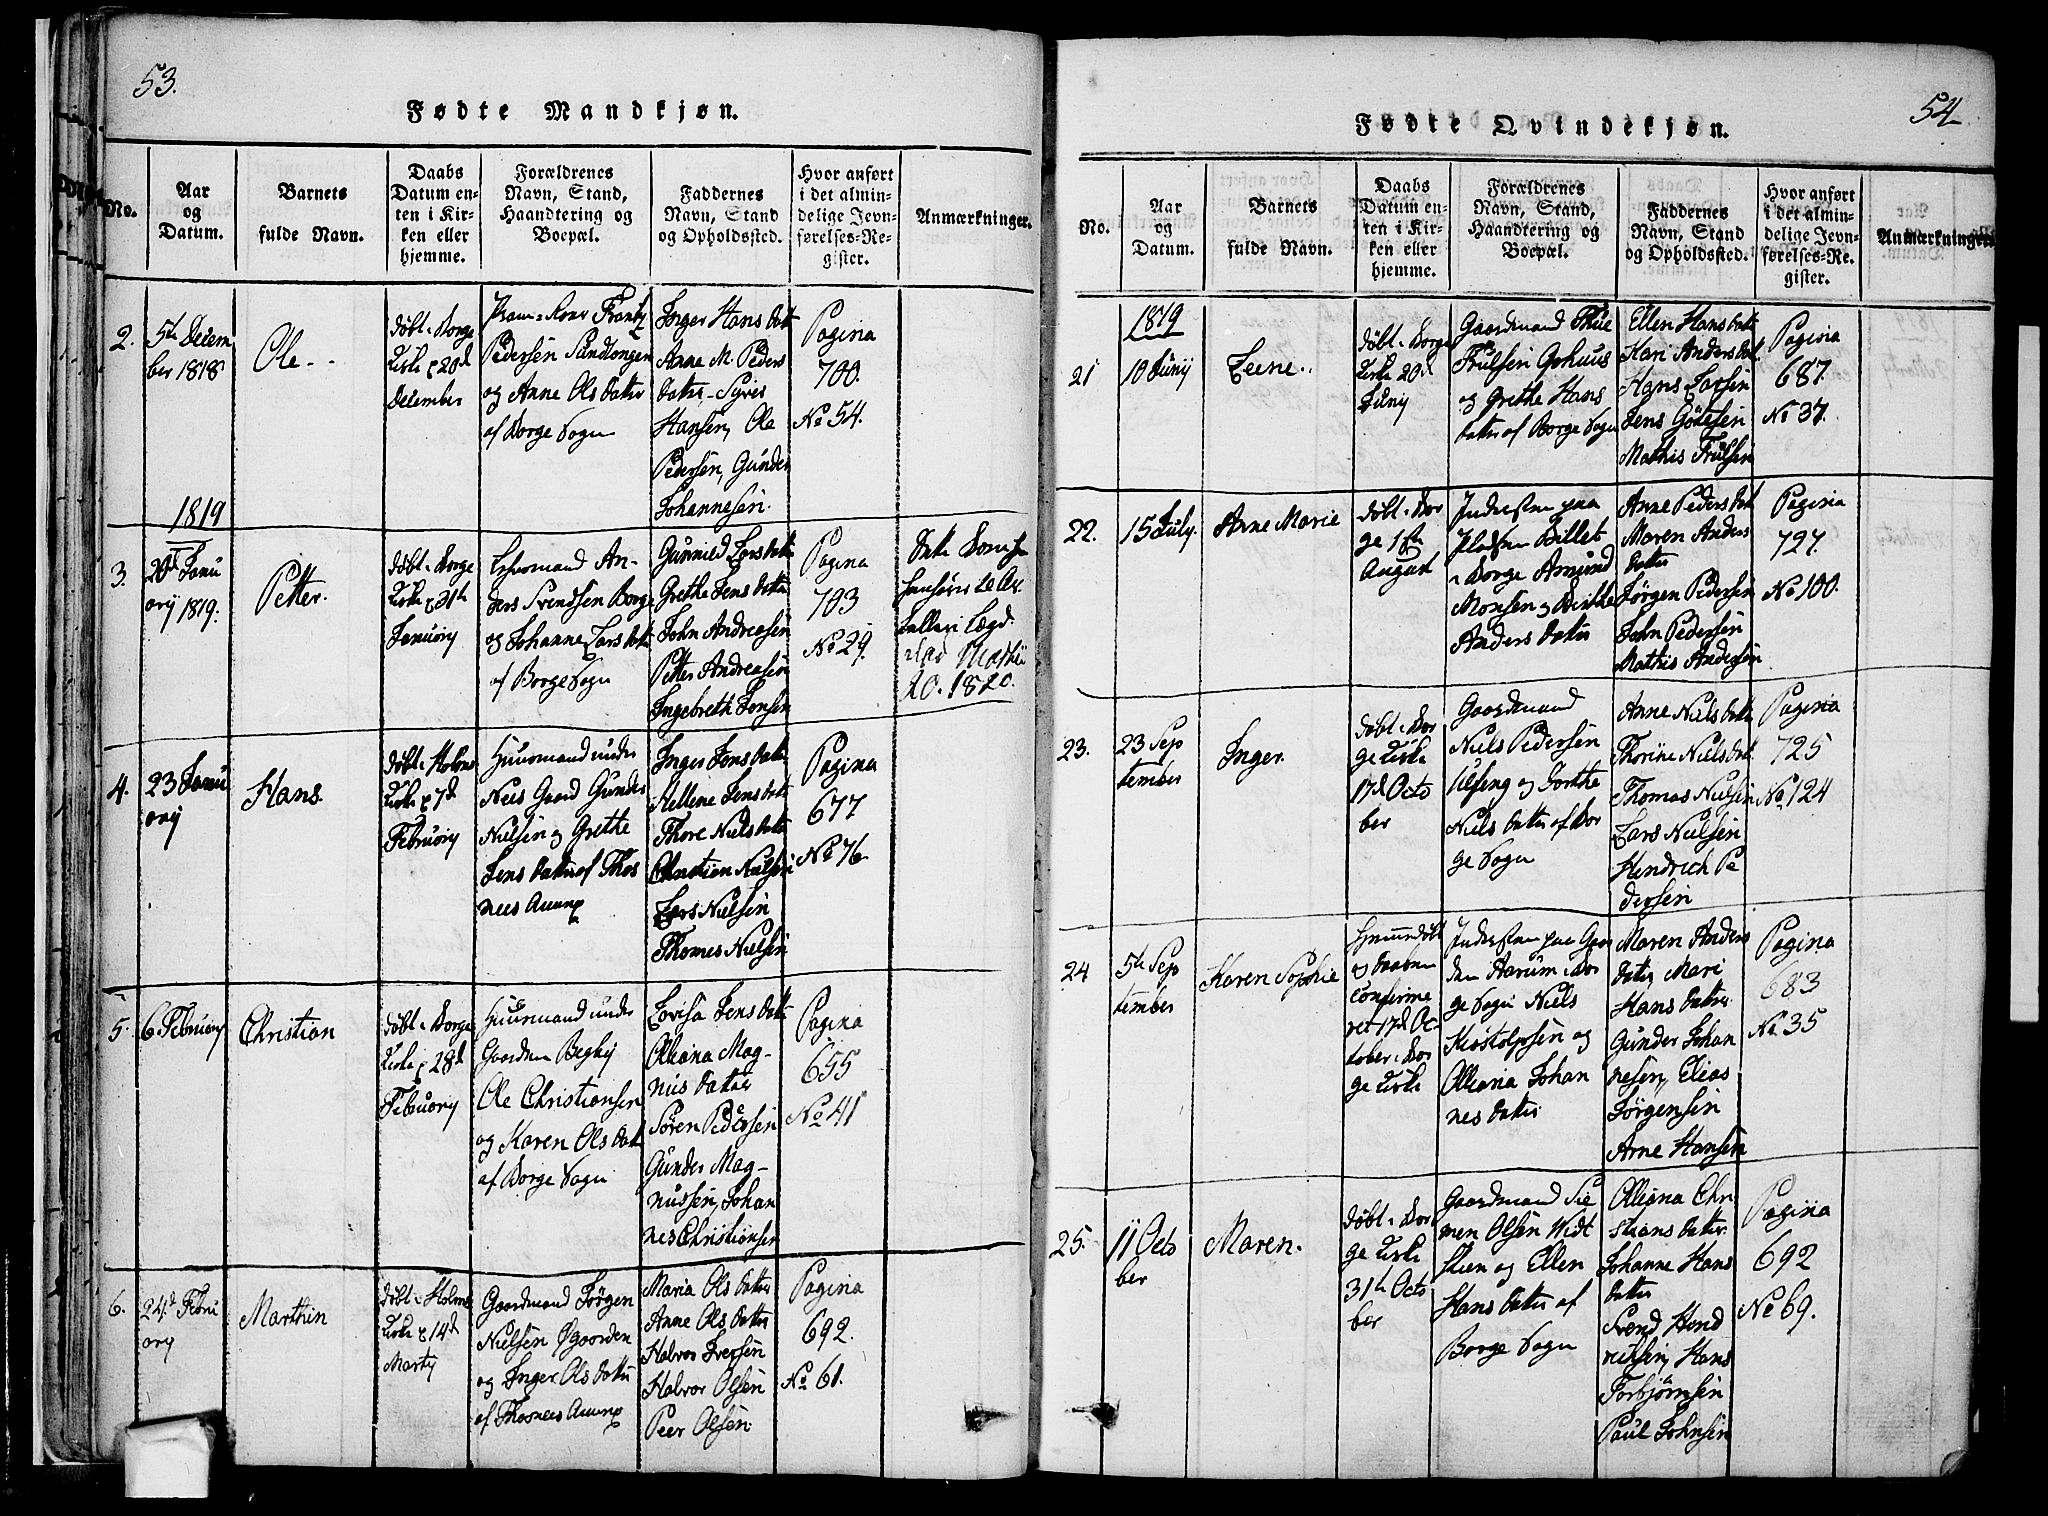 53.
Fødte Mandkjøn.
No.
Aar
og
Datum.
Barnets
fulde Navn.
Daabs
Datum en-
ten i Kir-
ken eller
hjemme.
Forældrenes
Navn, Stand,
Haandtering og
Boepæl.
Faddernes
Navn, Stand
og Opholdssted.
Hvor anført
i det almin-
delige Jevn-
førelses-Re-
gister.
Anmærkninger.
2.
5te Decem
ber 1818
Ole
døbt i Borge
Kirke d 20d
December
Pedersen Sandtangen
og Anne Olsdatter
af Borge Sogn
Inger Hansdatt
Anne M. Peders
datter, Syver
Hansen, Ole
Pedersen, Gunder
Johannesen.
Pagina
700.
No 54.
1819
3.
20d Janu
ary 1819.
Petter.
døbt i Borge
Kirke d 31te
January
An-
ders Svendsen Borge
og Johanne Larsdatt
af Borge Sogn
Gunnild Larsdatter
Grethe Jensdatter
John Andreasen
Petter Andreasen
Ingebreth Jensen
Pagina
703
No 29.
20. 1820.
4.
23 Janu
ary
Hans.
døbt i Holms
Kirke d 7d
February
Huusmand under
Nees Gaard Gunder
Nielsen og Grethe
Jensdatter af Thos
nees Annex
Inger Jensdatter
Hellene Jensdatt
Thore Nielsdatter
Christian Nielsen
Lars Nielsen
Thomes Nielsen
Pagina
677
No 76.
5.
6 February
Christian
døbt i Borge
Kirke d 28d
February
Huusmand under
Gaarden Begby
Ole Christiansen
og Karen Olsdatt
af Borge Sogn
Lovisa Jensdatt
Olliana Mag-
nus datter
Søren Pedersen
Gunder Mag-
nussen, Johan
nes Christiansen
Pagina
655
No 41
6.
24d Febru
ary
Marthin
døbt i Holms
Kirke d 14d
Marty
Gaardmand Jørgen
Nielsen Øgaarden
og Inger Olsdatter
af Thosnees Annex
Maria Olsdatter
Anne Olsdatter
Halvor Iversen
Halvor Olsen
Peer Olsen
Pagina
692.
No 61.
54
Fødte Qvindekjøn.
No.
Aar
og
Datum.
Barnets
fulde Navn.
Daabs
Datum en-
ten i Kir-
ken eller
hjemme.
Forældrenes
Navn, Stand,
Haandtering og
Boepæl.
Faddernes
Navn, Stand
og Opholdssted.
Hvor anført
i det almin-
delige Jevn-
førelses-Re-
gister.
Anmærkninger.
1819
21
10 Juny
Leene
døbt i Borge
Kirke 20d
Juny
Gaardmand Thue
Trulsen
og Grethe Hans
datter af Borge Sogn
Ellen Hansdatter
Kari Andersdat
Hans Larsen
Jens
Mathis Trulsen
Pagina
687.
No 37.
22.
15 July.
Anne Marie
døbt i Bor
ge 1ste
August
Indersten paa
Pladsen Billet
i Borge Amund
Monsen og Birthe
Andersdatter
Anne Pedersdat
Maren Anders
datter
Jørgen Pedersen
John Pedersen
Mathis Andersen
Pagina
727.
No 100.
23.
23 Sep
tember
Inger.
døbt i Bor
ge Kirke
17d Octo
ber
Gaardmand
Niels Pedersen
Ulfeng og Dorthe
Nielsdatter af Bor
ge Sogn
Anne Nielsdatter
Thorine Nielsdat
Thomas Nielsen
Lars Nielsen
Hendrich Pe
dersen
Pagina
725
No 124
24
5te Sep
tember
Karen Sophie
Hjemmedøbt
og Daaben
confirme
ret 17d Oc
tober i Bor
ge Kirke
Indersten paa Gaar
den Aarum i Bor
ge Sogn Niels
Kiøstolpsen og
Olliana Johan
nesdatter
Maren Anders
datter, Mari
Hansdatter
Gunder Johan
nesen, Elias
Jørgensen
Arne Hansen
Pagina
683
No 35
25.
11 Octo
ber
Maren.
døbt i Bor
ge Kirke
31te Octo
ber
Gaardmand Sie
men Olsen Hvidt
steen og Ellen
Hansdatter af
Borge Sogn
Olliana Chri
stiansdatter
Johanne Hans
datter
Svend Hend
richsen, Hans
Torbjørnsen
Paul Johnsen
Pagina
692
No 69.